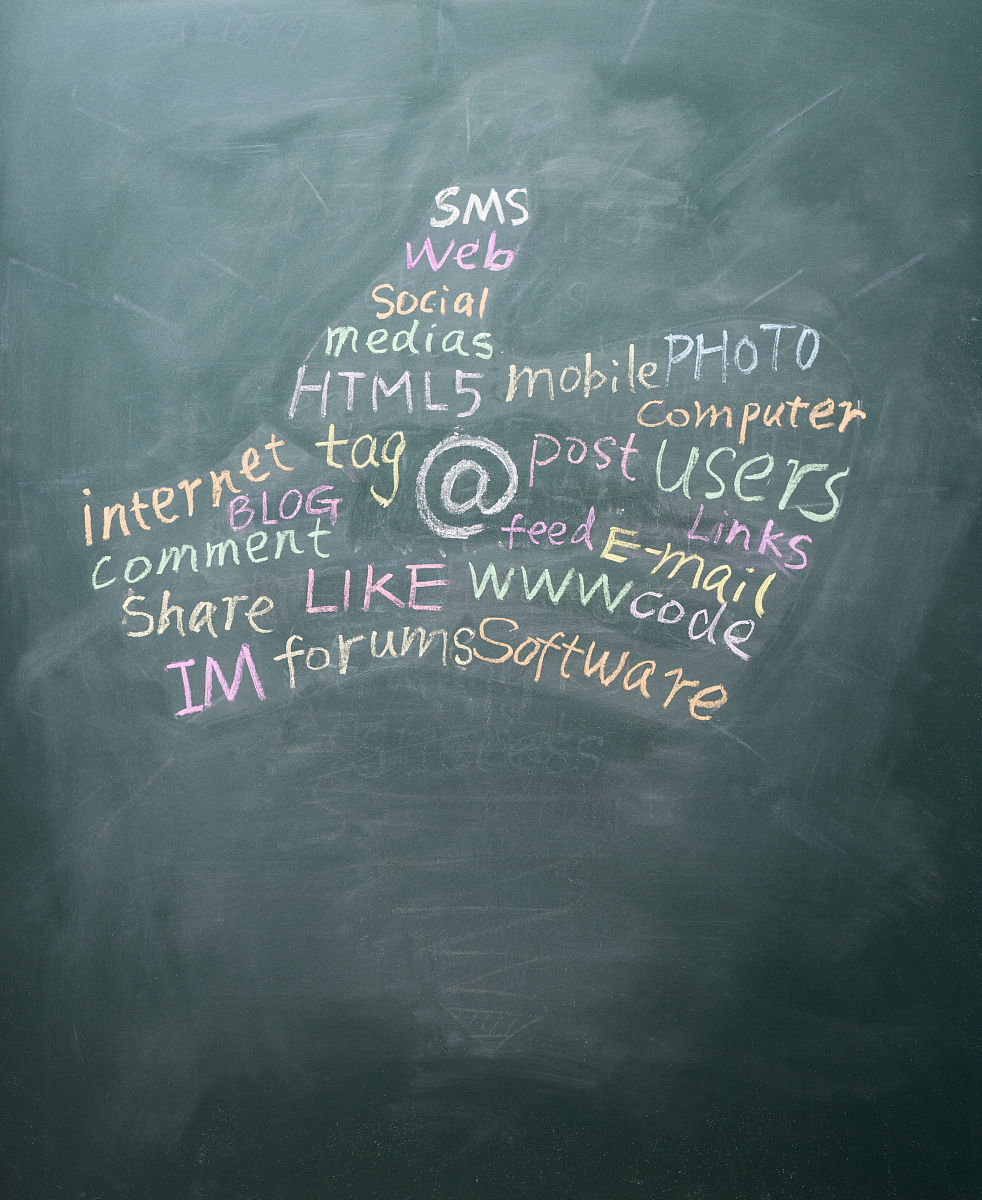 SMS
Web
Social
medias
HTML5 mobile PHOTO
computer
internet tag @ post users
BLOG feed E-mail Links
comment
Share LIKE WWW code
IM forums Software